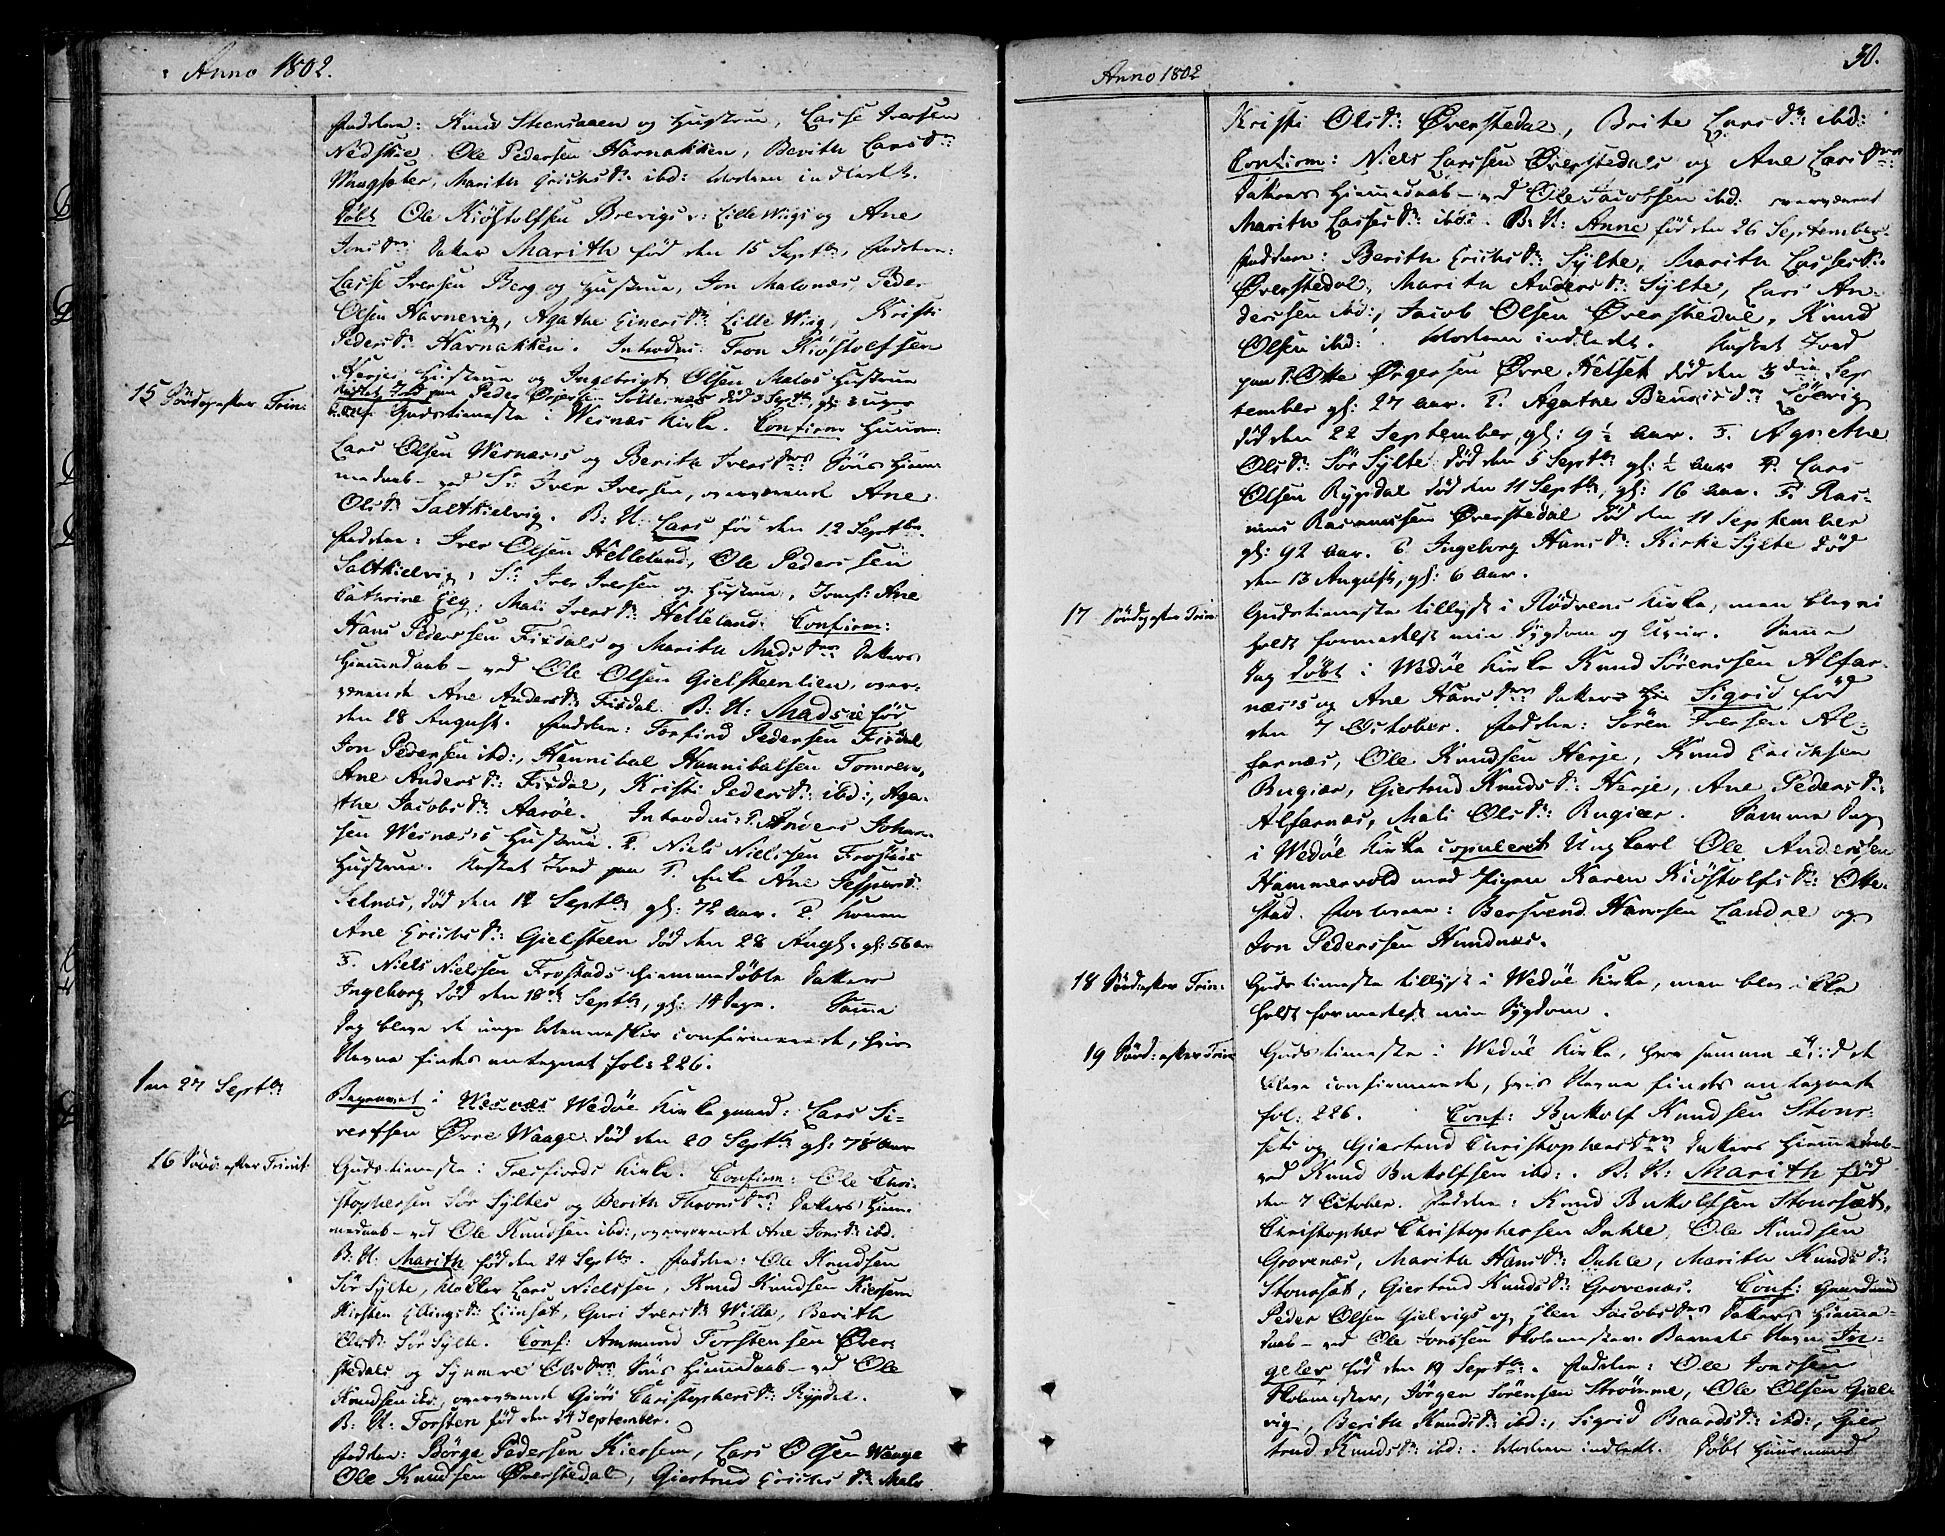 Anno 1802.
Fadderne: Knud Steensaaen og Hustrue, Lasse Iversen
Nedskie, Ole Pedersen Havnakken, Berith Larsdr:
Waagsæter, Marith Erichsdr: ibd: Moderen indledt.
Døbt Ole Kiøstolfsen Brevigs v: Lille Wiigs og Ane
Jonsdrs: Datter Marith fød den 15 Septbr, Fadderne:
Lasse Iversen Berg og Hustrue, Jon Malonæs, Peder
Olsen Havnevig, Agathe Einersdr: Lille Wiig, Kristi
Pedersdr: Havnakken. Introdus: Tron Kiøstolfsen
Herjes Hustrue og Ingebrigt Olsen Malos Hustrue
Kastet Jord paa Peder Ørjersen Solternæs død 3 Septbr, gl: 3 uger
15 Søndag efter Trin:
Gudstieneste i Wesnæs Kirke. Confirm Huusm:
Lars Olsen Wesnæses og Berith Iversdrs Søns Hiem-
medaab - ved Sr: Iver Iversen, overværende Ane
Olsdr Saltkielvig. B: N: Lars fød den 12 Septbr.
Fadderne: Iver Olsen Helleland, Ole Pederssen
Saltkielvig, Sr: Iver Iversen og Hustrue, Jomf: Ane
Cathrine Eeg, Mali Iversdr: Helleland. Confirm:
Hans Pederssen Fixdals og Marith Madsdrs Datters
Hiemmedaab - ved Ole Olsen Gielsteenlien, over-
værende Ane Andersdr: Fixdal. B: N: Madsie fød
den 28 August. Fadderne: Torfind Pedersen Fixdal
Jon Pedersen ibd:, Hannibal Hannibalsen Tomren,
Ane Andersdr: Fixdal, Kristi Pedersdr: ibd:, Aga-
the Jacobsdr Aarøe. Introdus: T. Anders Johan-
sen Wesnæses Hustrue. T. Niels Nielssen Frostads
Hustrue. Kastet Jord paa T. Enke Ane Jespersdr:
Selnæs, død den 12 Septbr gl: 72 Aar. T. Konen
Ane Erichsdr: Gielsteen død den 28 Aug: gl: 56 Aar
T. Niels Nielssen Frostads hiemmedøbte Datter
Ingeborg død den 18de Septbr, gl: 14 Dage. Samme
Dag bleve de unge Mennesker confirmerede, hvis
Navne findes antegnet fol: 226.
Den 27 Septbr
Begravet i Wesnæs Wedøe Kirkegaard: Lars Si-
vertsen Øvre Waage død den 20 Septbr gl: 78 Aar
16 Sønd: efter Trinit:
Gudstieneste i Tresfiords Kirke. Confirm: Ole Chri-
stophersen Sør Syltes og Berith Thronsdrs Datters Hiem-
medaab - ved Ole Knudsen ibd:, overværende Ane Jonsdr ibd.
B: N: Marith fød den 24 Septbr. Fadderne: Ole Knudsen
Sør Sylte, Lars Nielssen, Knud Knudsen Kiersem
Kirsten Ellingsdr: Eiinsæt, Guri Iversdr Wille, Berith
Olsdr: Sør Sylte. Conf: Ammund Torstensen Øver-
stedals og Synnive Olsdrs Søns Hiemmedaab - ved Ole
Knudsen ibd:, overværende Gjøri Christophersdr: Rypdal.
B: N: Torsten fød den 24 September.
Fadderne: Børge Pedersen Kiersem, Lars Olsen Waage
Ole Knudsen Øverstedal, Giertrud Erichsdr: Malo
Anno 1802
30.
Kristi Olsdr: Øverstedal, Brite Larsdr: ibd:
Confirm: Niels Larssen Øverstedals og Ane Larsdrs:
Datters Hiemmedaab - ved Ole Jacobsen ibd: overværende
Marith Lassesdr: ibd:. B: N: Anne fød den 26 September.
Fadderne: Berith Erichsdr: Sylte, Marith Lassesdr:
Øverstedal, Marith Andersdr: Sylte, Lars An-
derssen ibd:, Jacob Olsen Øverstedal, Knud
Olsen ibd: Moderen indledt. Kastet Jord
paa T. Otte Ørgersen Øvre Helset død den 3die Sep-
tember gl: 27 Aar. T. Agathe Bensisdr: Sølvig
død den 22 September, gl: 9 ½ Aar. T. Agnethe
Olsdr: Sør Sylte død den 5 Septbr gl: ½ Aar T. Lars
Olsen Rypdal død den 11 Septbr, gl: 16 Aar. T. Ras-
mus Rasmussen Øverstedal død den 11 September
gl: 92 Aar. T. Ingeborg Hansdr: Kirke Sylte død
den 13 August, gl: 6 Aar.
17 Søndag efter Trin:
Gudstieneste tillyst i Rødvens Kirke, men blev ei
holdt formedelst min Sygdom og Uveir. Samme
Dag døbt i Wedøe Kirke Knud Sørenssen Alfar-
næses og Ane Hansdrs: Datter Sigrid fød
den 7 October. Fadderne: Søren Iversen Al-
farnæs, Ole Knudsen Herje, Knud Ericksen
Bugiær, Giertrud Knudsdr: Herje, Ane Pedersdr:
Alfarnæs, Mali Olsdr: Bugiær. Samme Dag
i Wedøe Kirke copuleret Ungkarl Ole Anderssen
Hammervold med Pigen Karen Kiøstolfsdr: Otte-
stad. Forlovere: Bersvend Hanssen Landne og
Jon Pederssen Hundnæs.
18 Sønd: efter Trin:
Gudstieneste tillyst i Wedøe Kirke, men blev ikke
holdt formedelst min Sygdom.
19 Sønd: efter Trin
Gudstieneste i Wedøe Kirke, hvor samme Tiid de
bleve confirmerede, hvis Navne findes antegnede
fol: 226. Conf: Bukolf Knudsen Stour-
sets og Giertrud Christophersdrs Datters Hiemmedaab-
ved Knud Bukolfsen ibd:. B: N: Marith fød
den 7 October. Fadderne: Knud Bukolfsen Stoursæt,
Christopher Christophersen Dahle, Ole Knudsen
Grovenæs, Marith Hansdr: Dahle, Marith Knudsdr:
Stoursæt, Giertrud Knudsdr: Grovenæs. Conf: Gaardmand
Peder Olsen Gielvigs og Elen Jacobsdrs Datters Hiemme-
daab - ved Ole Jonssen Holmester. Barnets Navn In-
geler fød den 19 Septbr. Fadderne: Ole Jonssen
Holmester, Jørgen Sørensen Strømme, Ole Olsen Giel-
vig, Berith Knudsdr: ibd:, Sigrid Baardsdr: ibd:, Gier
trud Knudsdr: ibd:. Moderen indledt. Døbt Huusmand